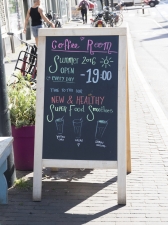 Coffee Room
Summer 2016
OPEN
EVERY DAY
-19:00
TIME TO TRY OUR
NEW & HEALTHY
Super Food Smoothies